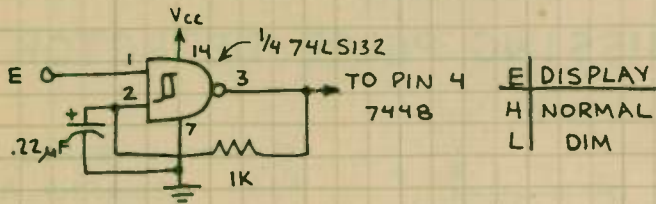 Vcc
14
1/4 74LS132
E
1
2
3
7
TO PIN 4
7448
+
.22µF
1K
E DISPLAY
H NORMAL
L DIM